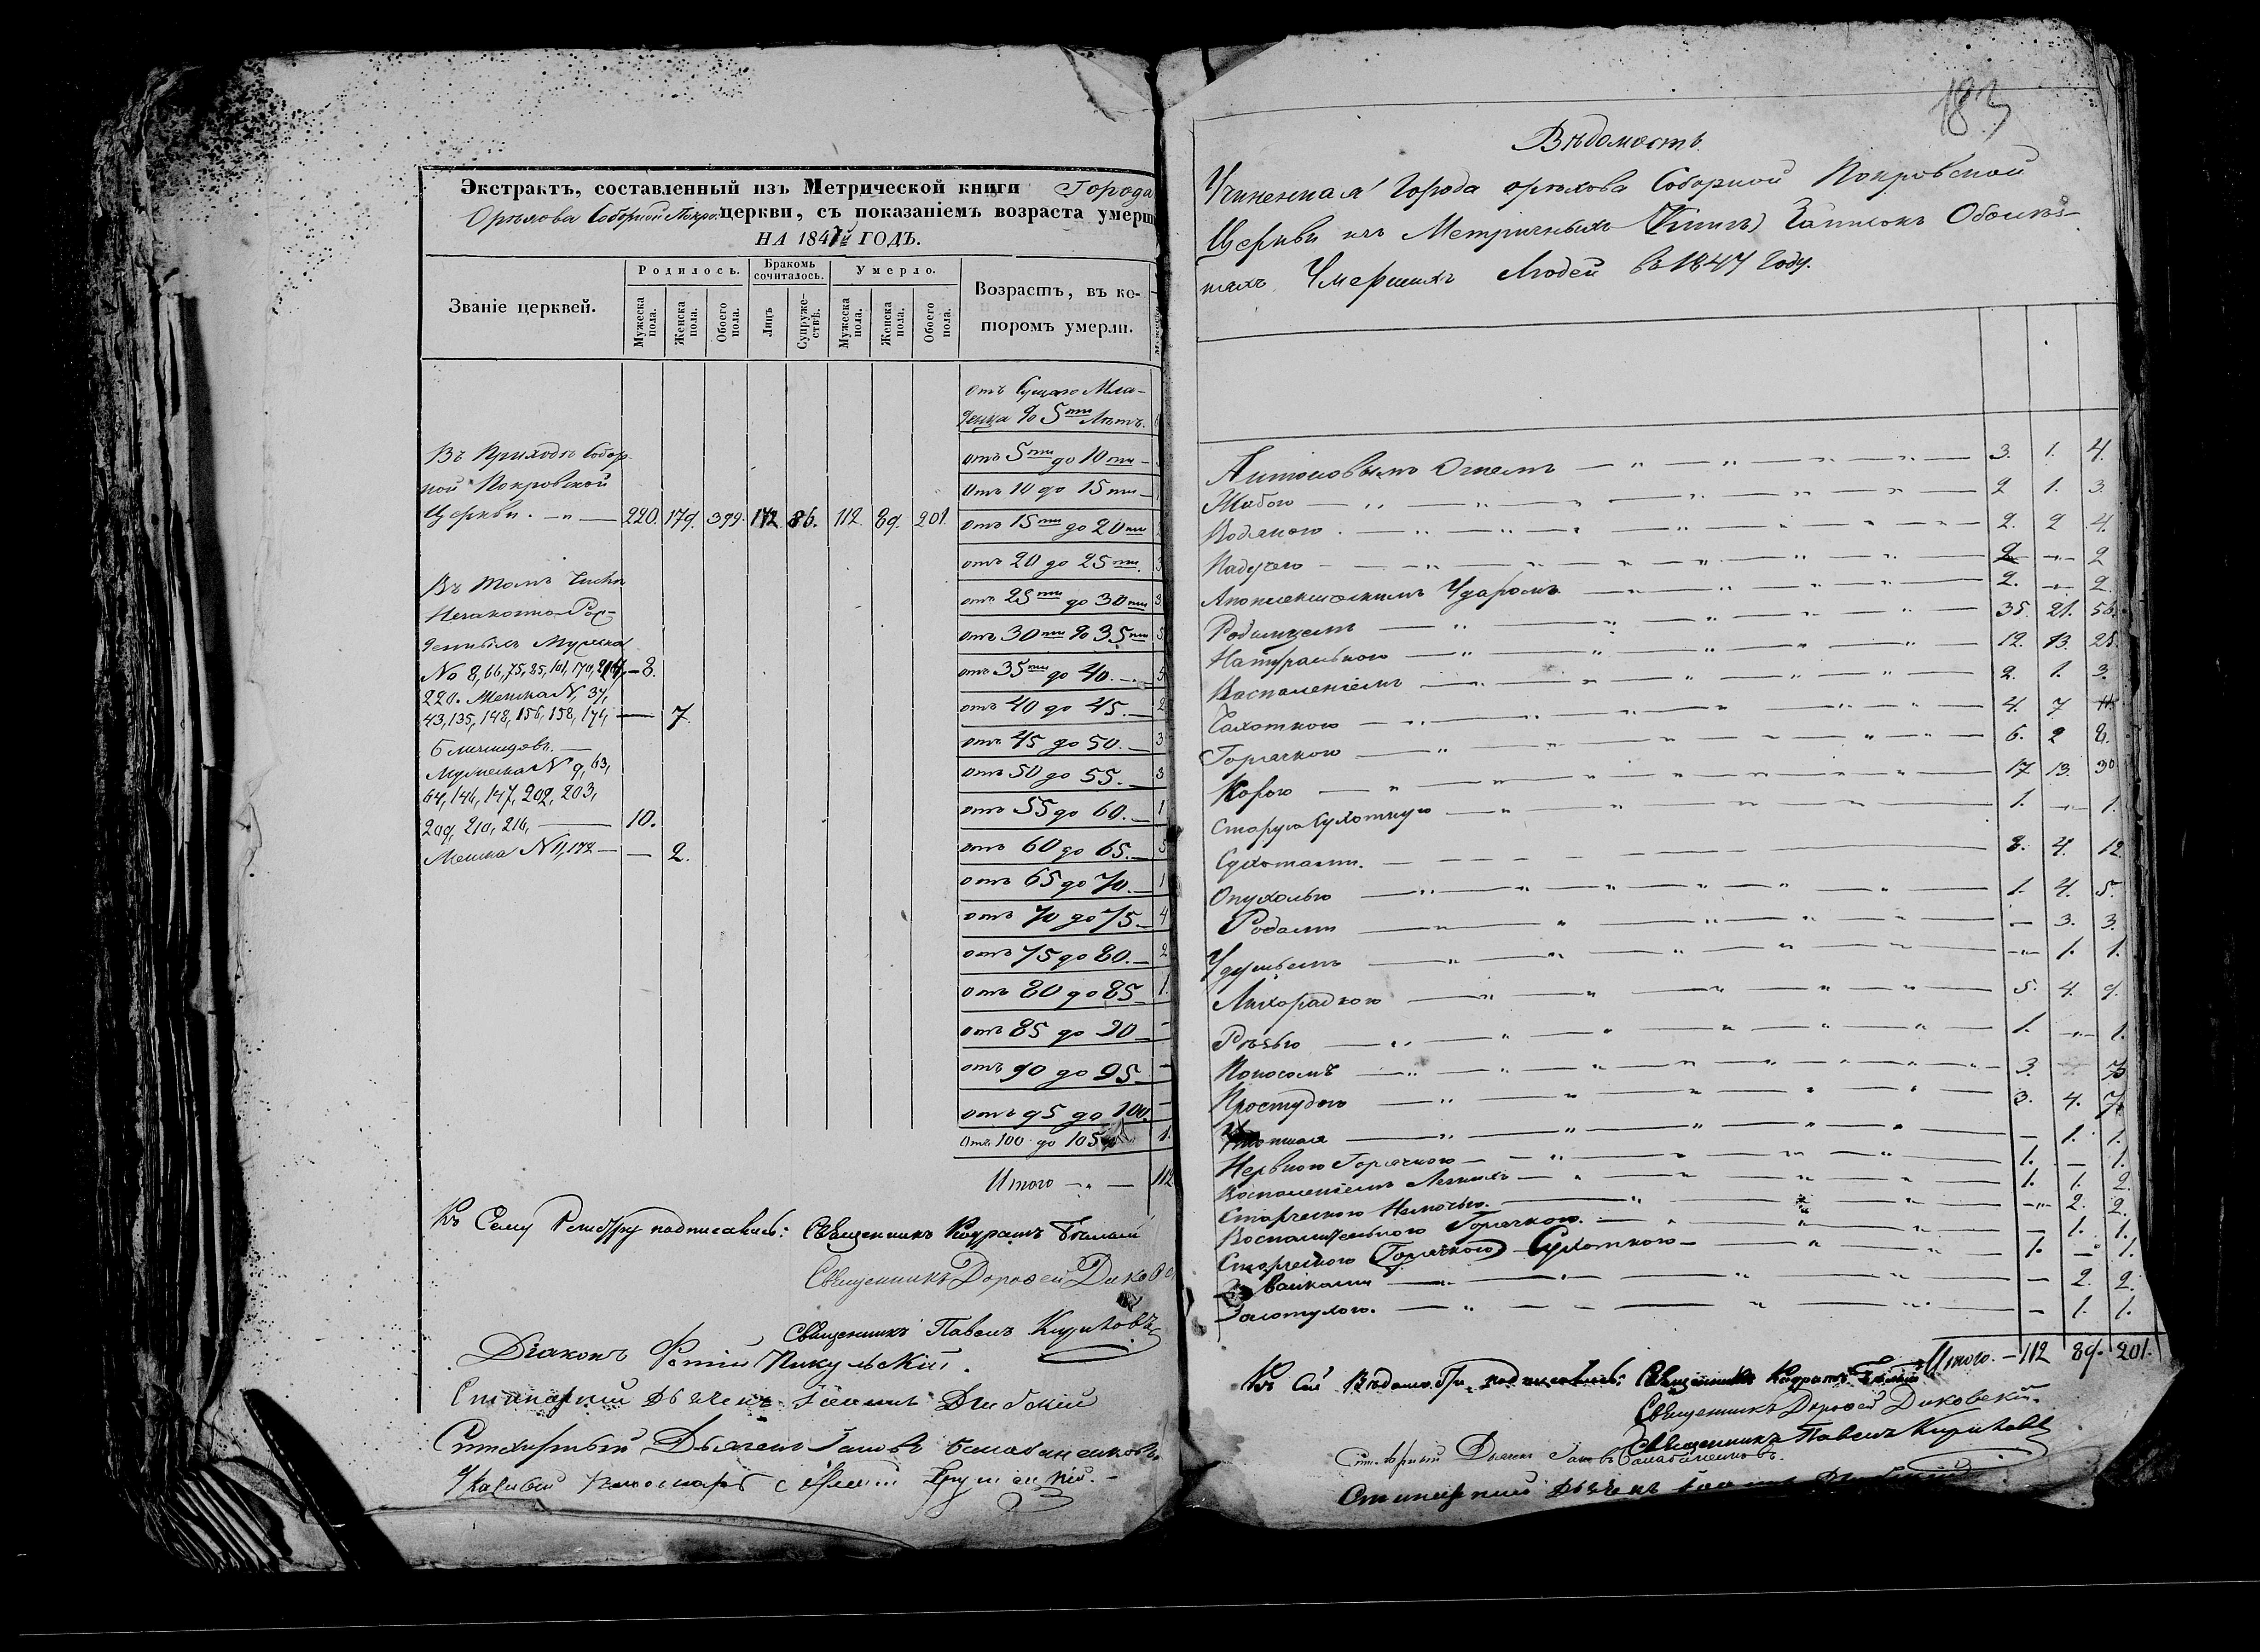 Экстрактъ, составленный изъ Метрической книги Города
Орѣхова Соборной Покро: церкви, съ показаніемъ возраста умерш
НА 1847й ГОДЪ.
Званіе церквей.
Родилось.
Бракомъ сочиталось.
Умерло.
Возрастъ, въ ко-
торомъ умерли.
Мужеска пола.
Женска пола.
Обоего пола.
Лицъ
Супруже-ствъ.
Мужеска пола.
Женска пола.
Обоего пола.
Въ Приходѣ Собор
ной Покровской
Церкви. — „ — 220. 179. 399. 172 86. 112. 89. 201.
Въ томъ числѣ
Незаконно Рож-
денныхъ Мужеска
No 8, 66, 75, 85, 101, 170, — 8.
220. Женска N, 37,
43, 135, 148, 156, 158, 174, — 7.
Близнецовъ. —
Мужеска N 9, 63,
64, 146, 147, 202, 203,
209, 210, 216, — 10.
Женска N 11, 172 — — 2.
отъ Сущаго Мла-
денца до 5ти Лѣтъ.
отъ 5ти до 10ти —
Отъ 10 до 15ти —
отъ 15ти до 20ти
отъ 20 до 25ти. 3
отъ 25ти до 30ти 3
отъ 30ти до 35ти 5
отъ 35ти до 40. — 5
отъ 40 до 45. — 2
отъ 45 до 50. — 3
отъ 50 до 55. — 3
отъ 55 до 60. — 1
отъ 60 до 65. — 5
отъ 65 до 70. — 1
отъ 70 до 75. — 4
отъ 75 до 80. — 2
отъ 80 до 85 — 1.
отъ 85 до 90 — –
отъ 90 до 95 — –
отъ 95 до 100. –
Отъ 100 до 105 1.
Итого — „ — 112
Къ Сему подписались: Священникъ Кодратъ Бѣлый
Священникъ Дорофей Диков
Священникъ Павелъ Кириковъ
Діаконъ Фотій Пикульскій.
Дьячекъ Іоаннъ
Дьячекъ Іаковъ
Понамарь
183
Вѣдомость
Учиненная Города Орѣхова Соборной Покровской
Церкви изъ Метричныхъ Книгъ Записокъ О болѣз-
няхъ Умершихъ Людей въ 1847 Году.
Антоновымъ Огнемъ — 3. 1. 4.
Жабою — 2 1. 3.
Водяною — 2. 2 4.
Падучею — 2 — 2
Апоплексическимъ Ударомъ — 2. — 2.
Родимцемъ — 35. 21. 56.
Натуральною — 12. 13. 25.
Воспаленіемъ — 2. 1. 3.
Чахоткою — 4. 7 11.
Горячкою — 6. 2 8.
Корью — 17 13. 30
Старую Сухотную — 1. — 1.
Сухотами. — 8. 4. 12.
Опухолью — 1. 4. 5.
Родами — — 3. 3.
Удушьемъ — — 1. 1.
Лихорадкою — 5. 4. 9.
Рѣзью — 1. — 1.
Поносомъ — 3. 3
Простудою — 3. 4. 7.
Утопшая — — 1. 1.
Нервною Горячкою — 1. — 1.
Воспаленіемъ Легкихъ — 1. 1. 2.
Старческою Немочью. — — 2. 2.
Воспалительною Горячкою. — — 1. 1.
Старческою (Горячкою) Сухоткою — 1. — 1.
— — 2. 2.
Золотухою. — — 1. 1.
Итого. — 112 89. 201.
Къ Сей Вѣдомости подписались: Священникъ Кодратъ Бѣлый
Священникъ Дорофей Диковскій.
Священникъ Павелъ Кириковъ
Дьячекъ Іаковъ
Дьячекъ Іоаннъ